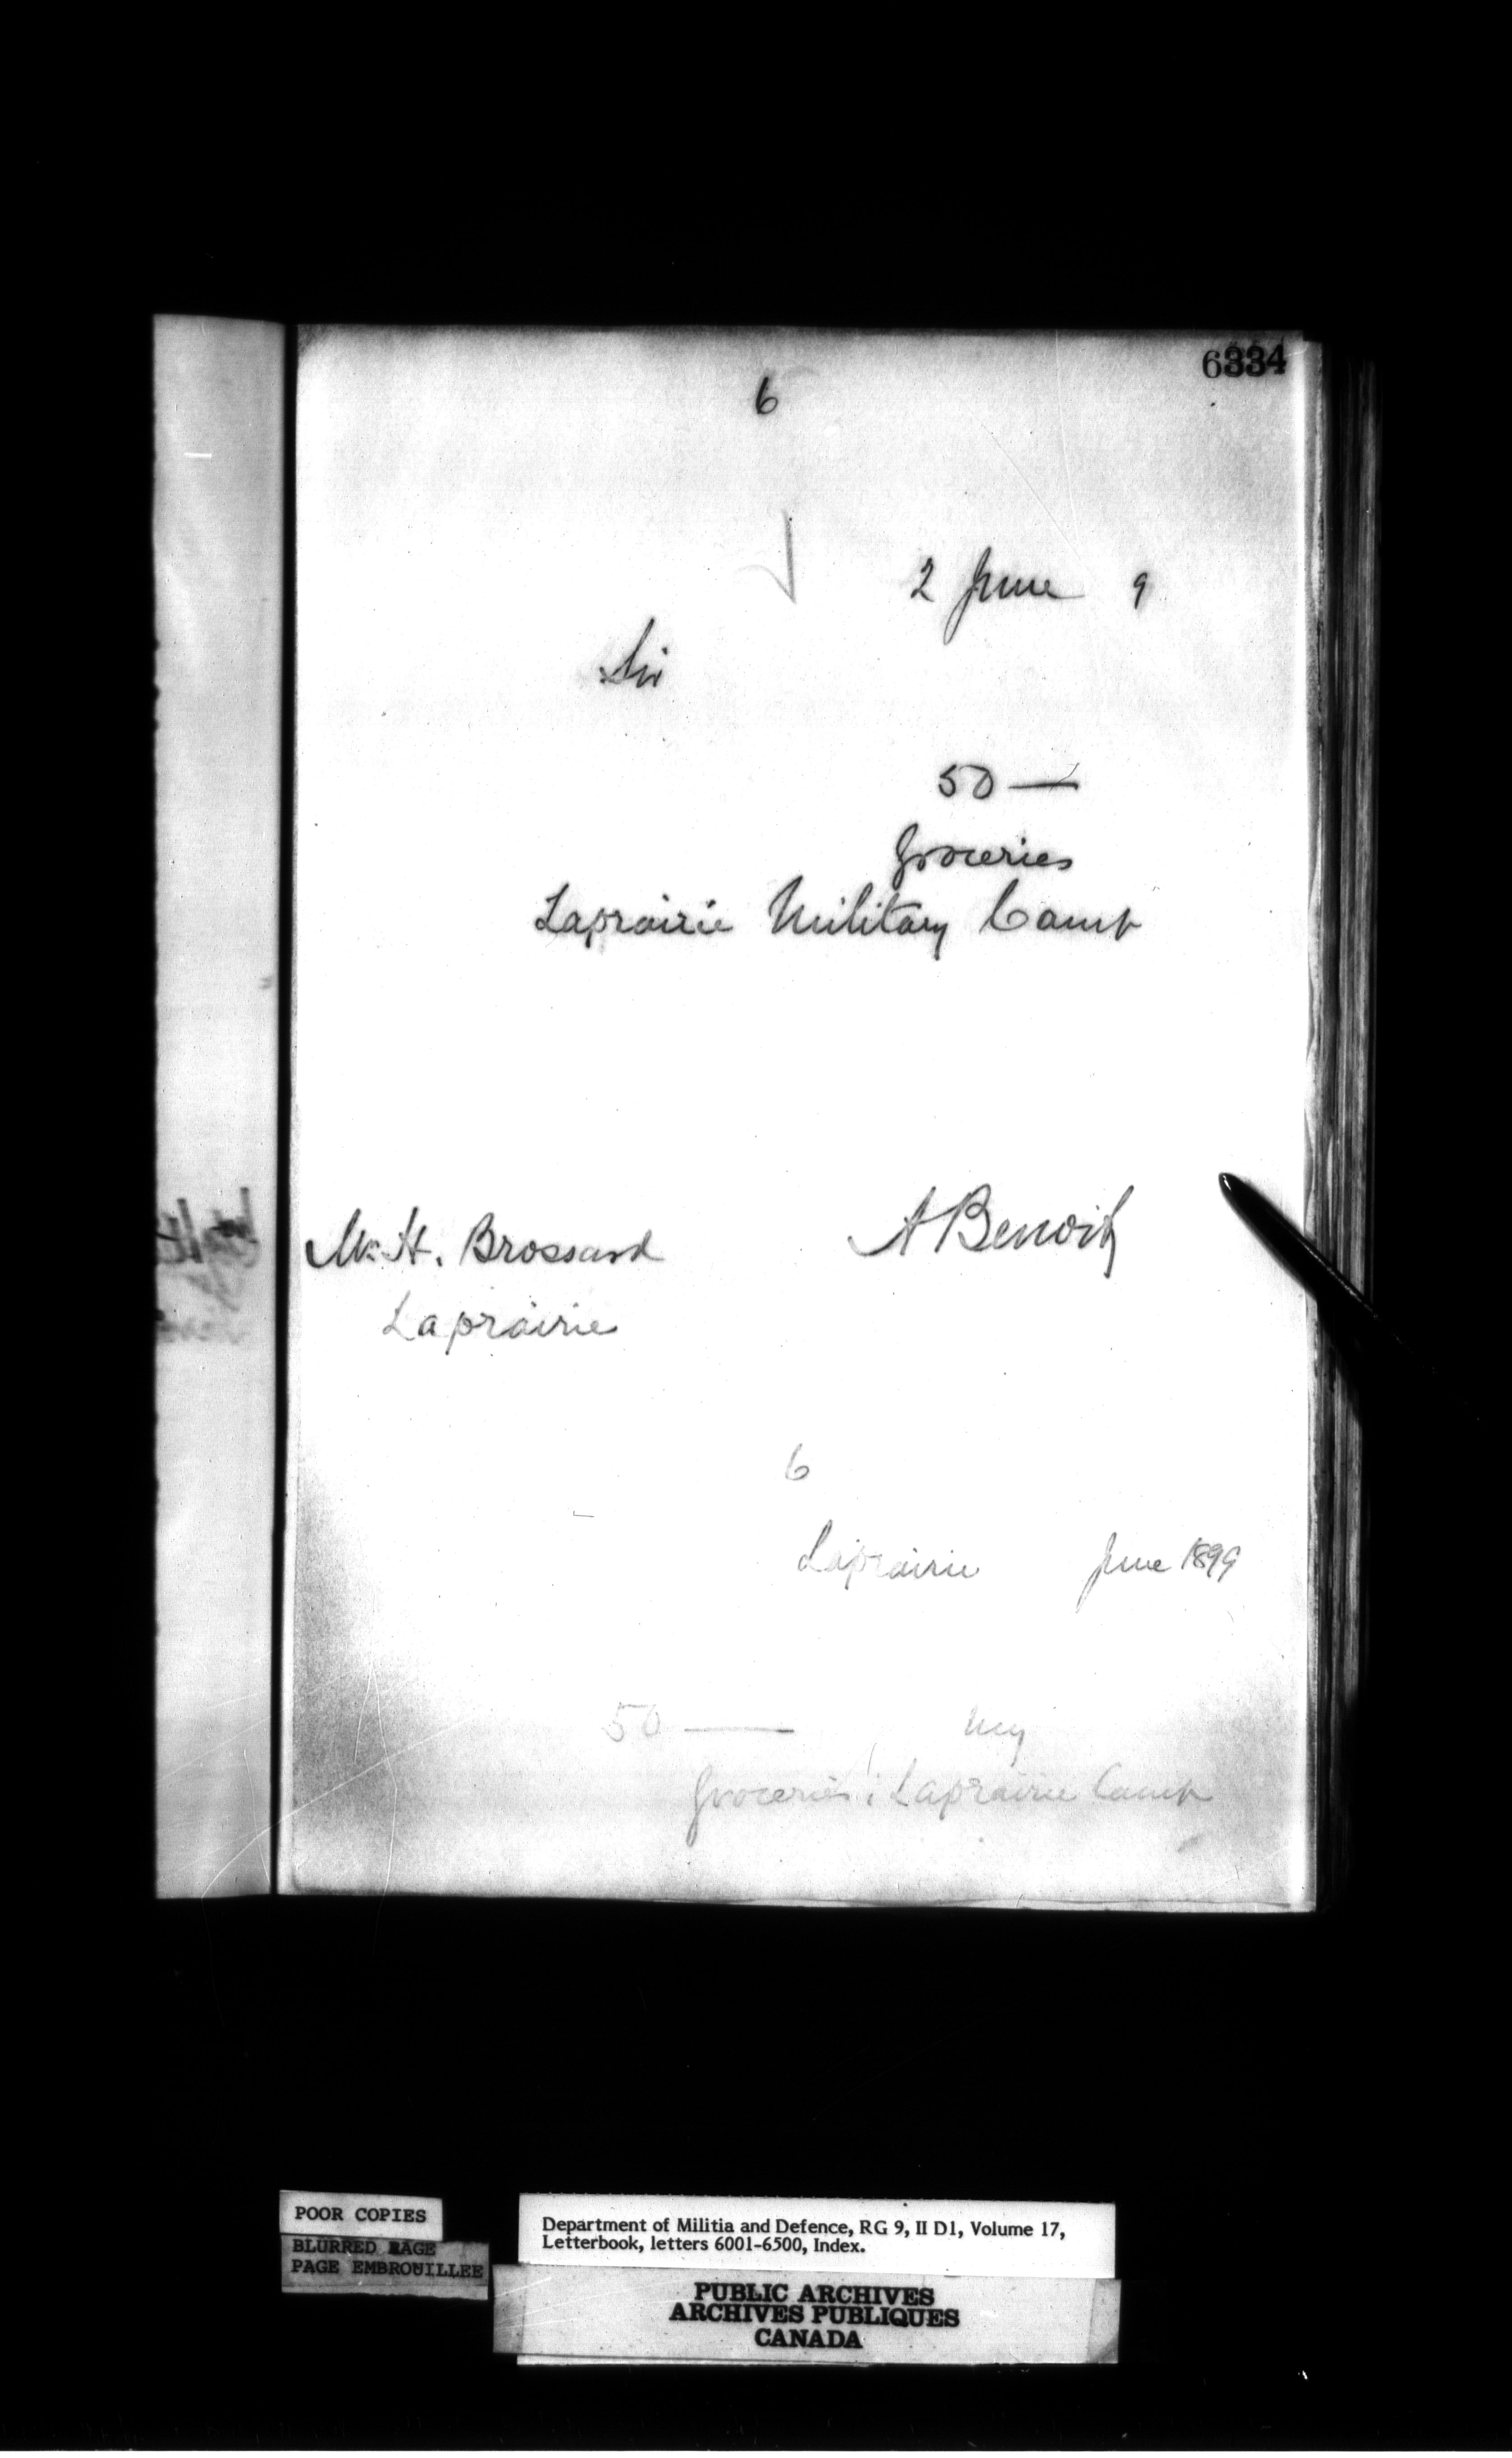 6334
6
2 June 9
Sir
50 —
Groceries
Laprairie Military Camp
A Benoit
Mr H. Brossard
Laprairie
6
Laprairie June 1899
50 — my
Groceries; Laprairie Camp
POOR COPIES
BLURRED PAGE
PAGE EMBROUILLEE
Department of Militia and Defence, RG 9, II D1, Volume 17,
Letterbook, letters 6001-6500, Index.
PUBLIC ARCHIVES
ARCHIVES PUBLIQUES
CANADA